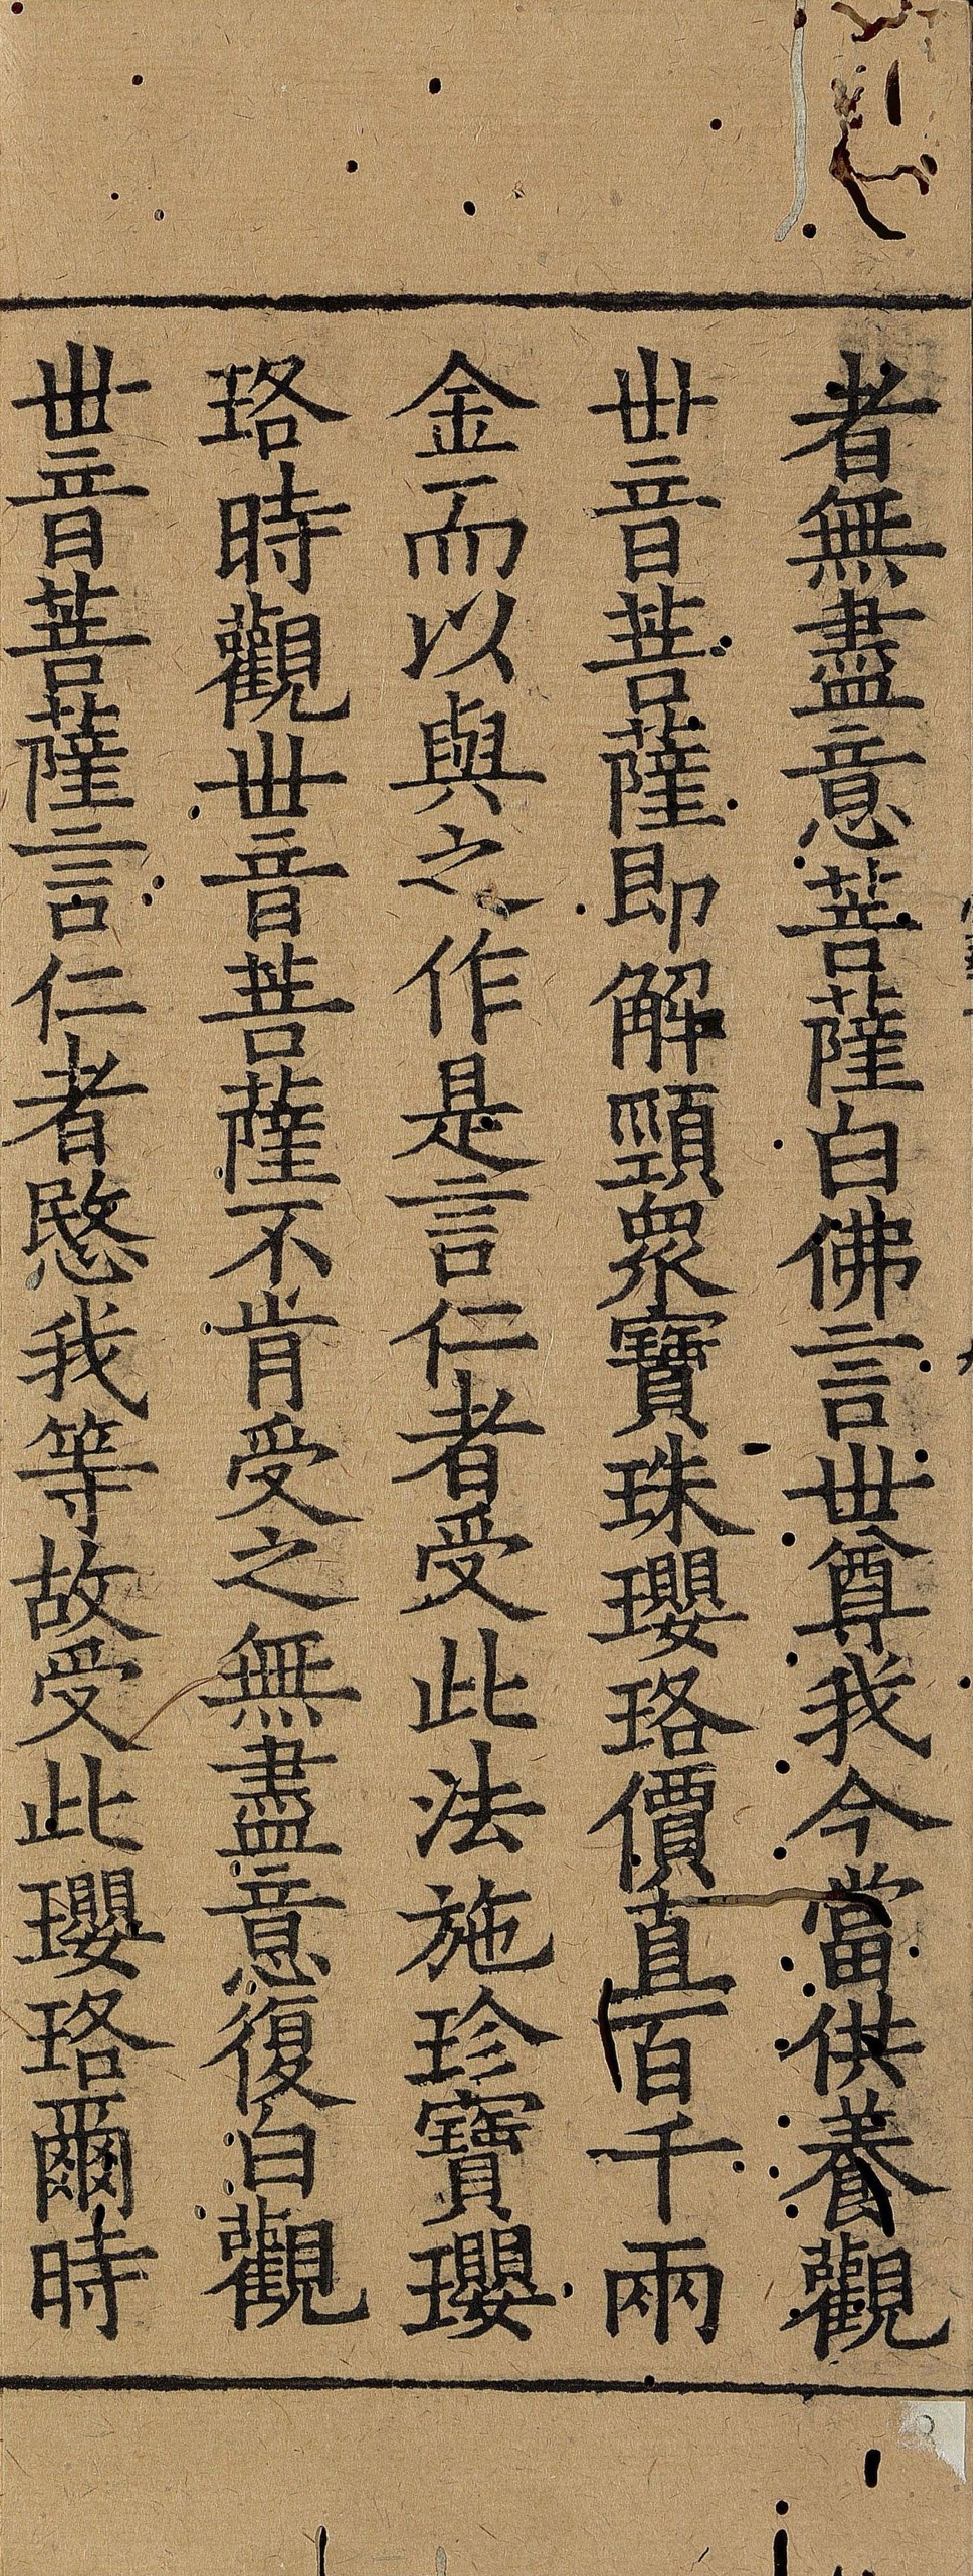 者無盡意菩薩白佛言世尊我今當供養觀
世音菩薩即解頸衆寶珠瓔珞價直百千兩
金而以與之作是言仁者受此法施珍寶瓔
珞時觀世音菩薩不肯受之無盡意復白觀
世音菩薩言仁者愍我等故受此瓔珞爾時